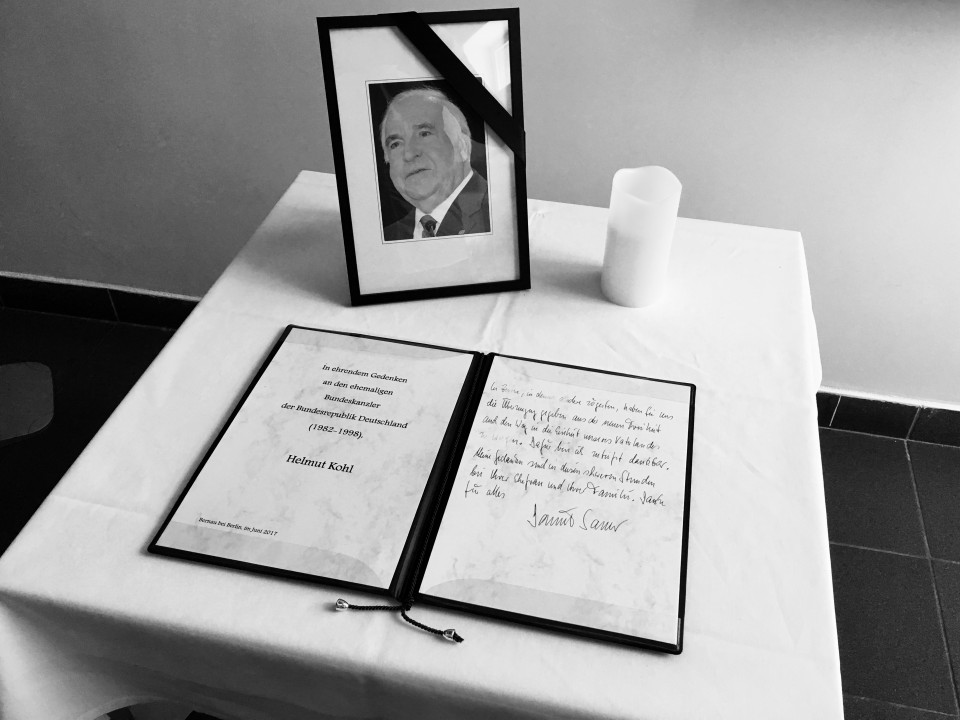 In ehrendem Gedenken
an den ehemaligen
Bundeskanzler
der Bundesrepublik Deutschland
(1982–1998),
Helmut Kohl
Bernau bei Berlin, im Juni 2017
In Zeiten, in denen andere zögerten, haben Sie uns
die Überzeugung gegeben aus der neuen Freiheit
und den Weg in die Einheit unseres Vaterlandes
Dafür bin ich zutiefst dankbar.
Meine Gedanken sind in diesen schweren Stunden
bei Ihrer Ehefrau und Ihrer Familie. Danke
für alles